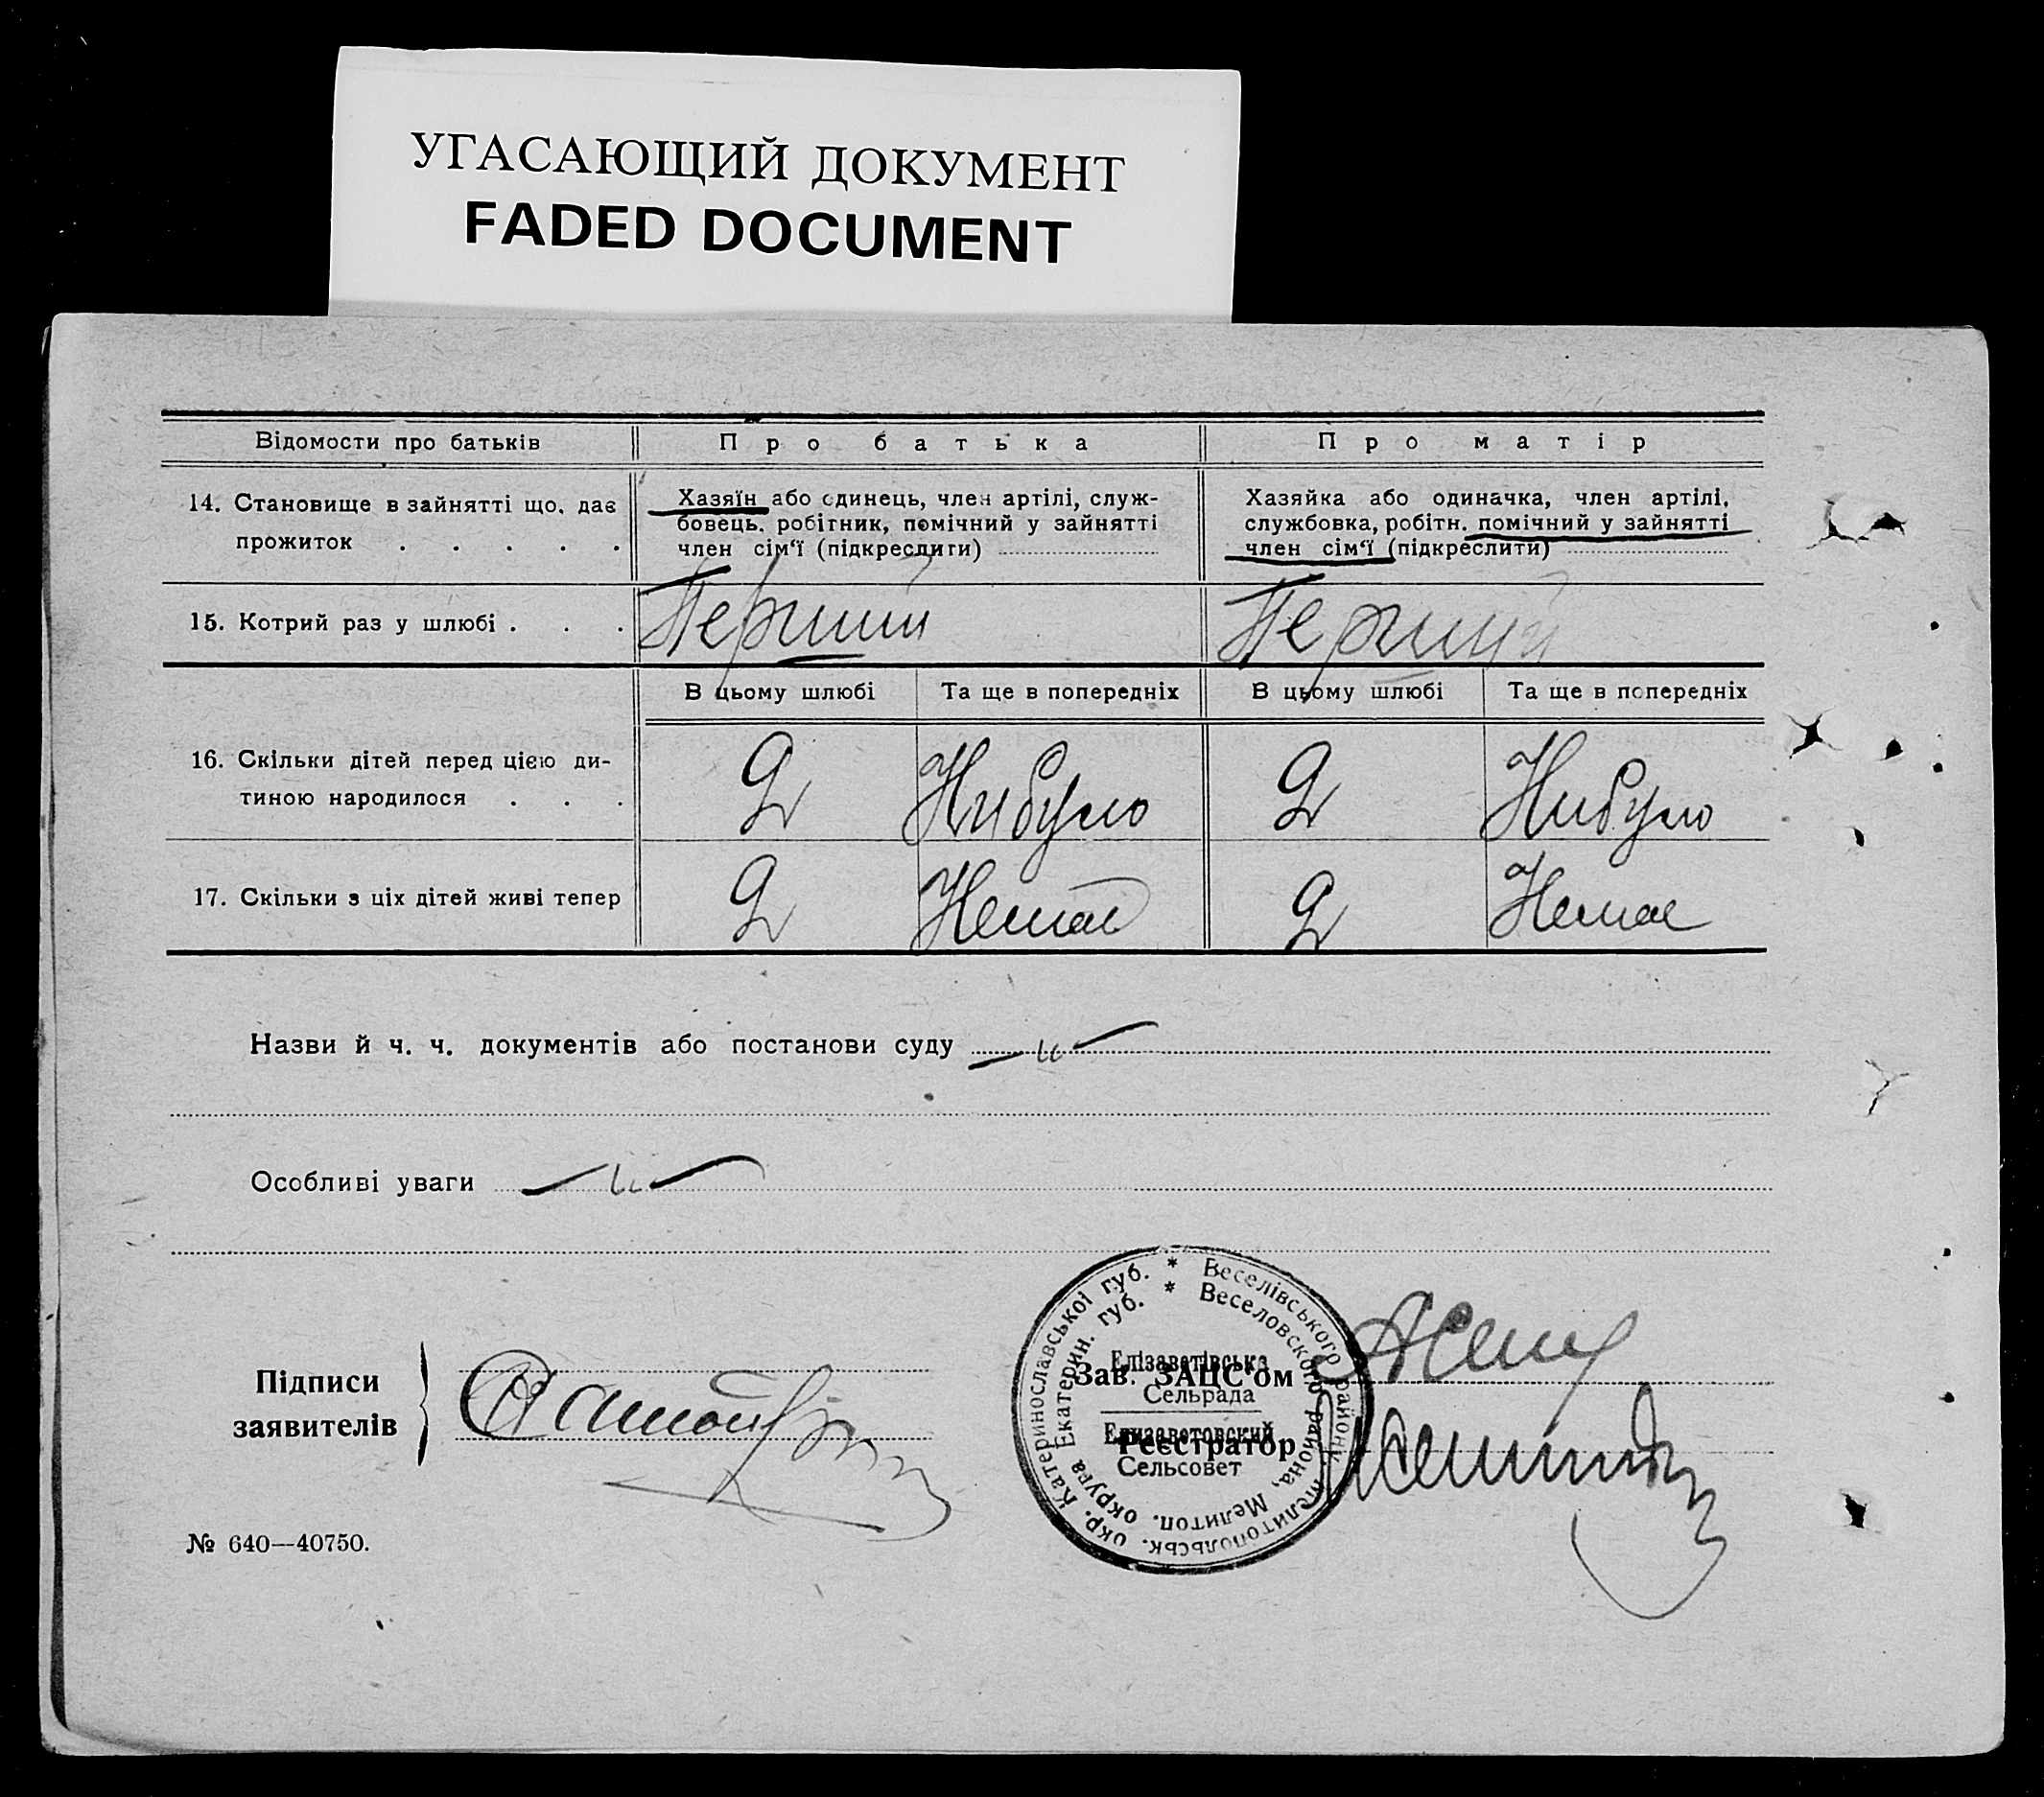 УГАСАЮЩИЙ ДОКУМЕНТ
FADED DOCUMENT
Відомости про батьків
Про батька
Про матір
14. Становище в зайнятті що. дає
прожиток . . . . .
Хазяїн або єдинець, член артілі, служ-
бовець. робітник, помічний у зайнятті
член сім'ї (підкреслити)
Хазяйка або одиначка, член артілі,
службовка, робітн. помічний у зайнятті
член сім'ї (підкреслити)
15. Котрий раз у шлюбі . . .
Перший
Перший
В цьому шлюбі
Та ще в попередніх
В цьому шлюбі
Та ще в попередніх
16. Скільки дітей перед цією ди-
тиною народилося . . .
2
Нибуло
2
Нибуло
17. Скільки з ціх дітей живі тепер
2
Немає
2
Немає
Назви й ч. ч. документів або постанови суду — „ —
Особливі уваги — „ —
Підписи
заявителів
Зав. ЗАЦС'ом
Реєстратор
Катеринославської губ. * Веселівського району, Мелитопольськ. окр.
Екатерин. губ. * Веселовского района, Мелитоп. округа
Елізаветівська
Сельрада
Елизаветовский
Сельсовет
№ 640—40750.